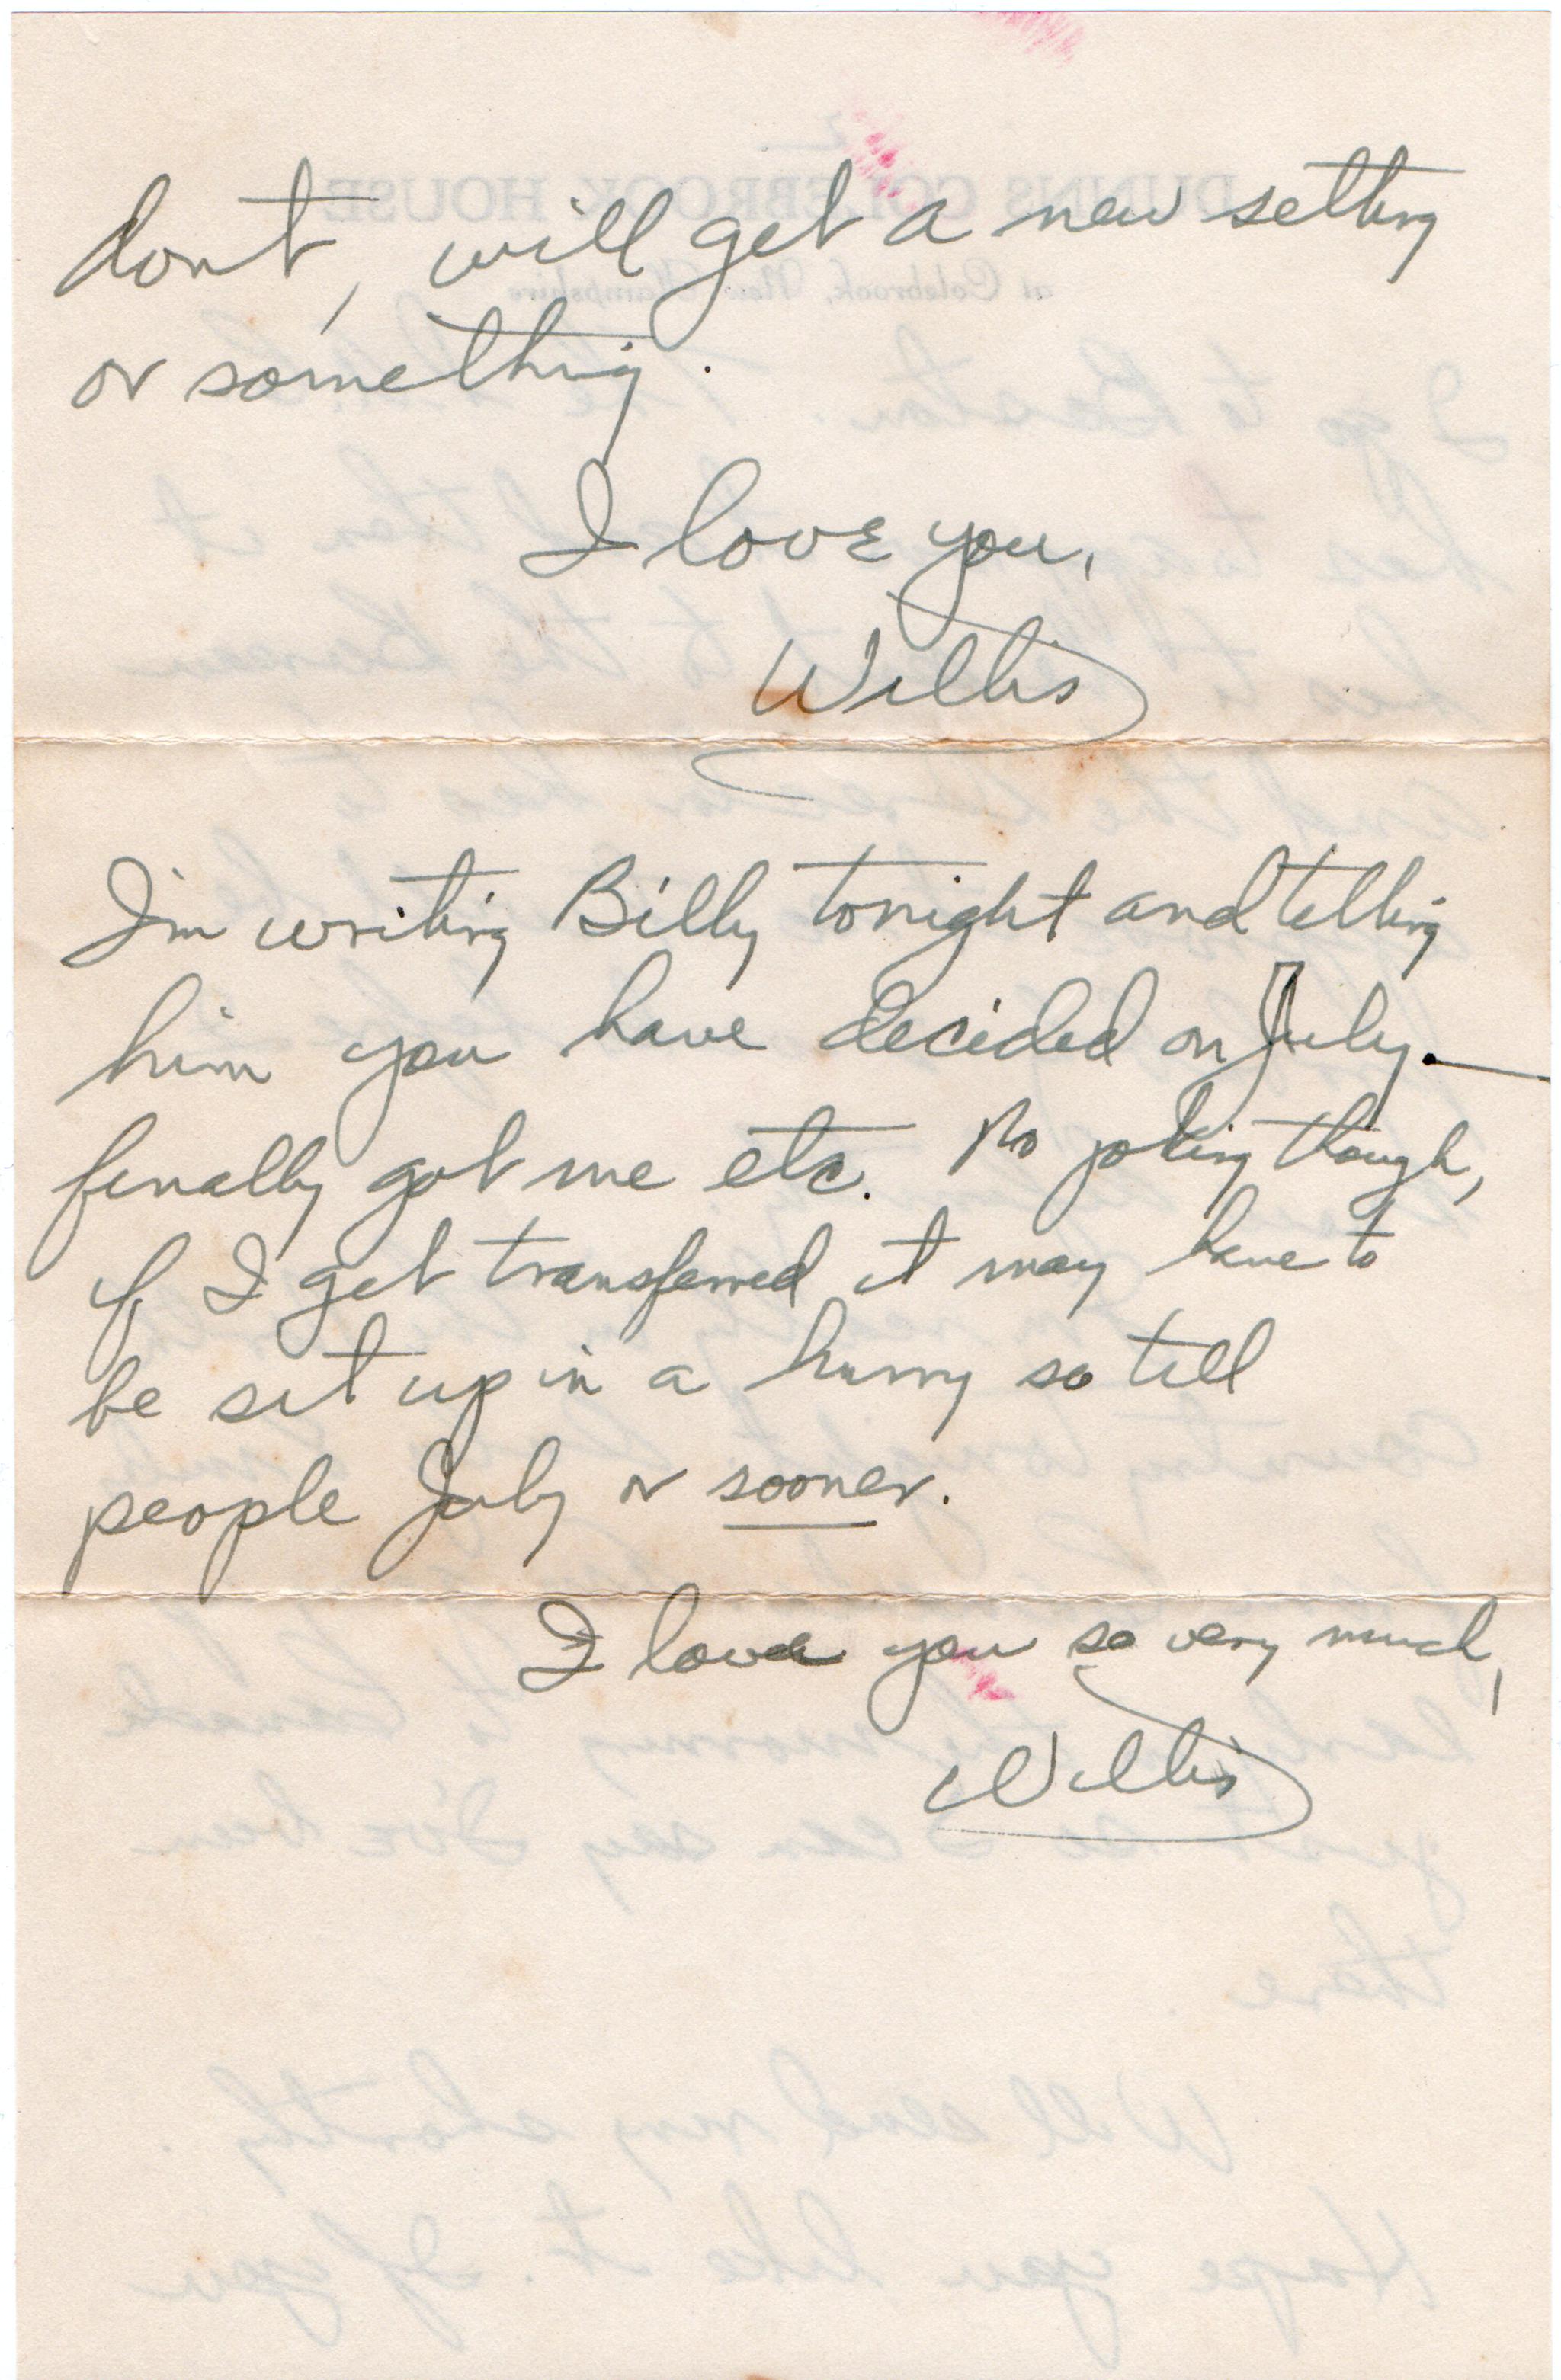 dont, will get a new setting
or something.
I love you,
Willis
I'm writing Billy tonight and telling
him you have decided on July. —
finally got me etc. No joking though,
if I get transferred it may have to
be set up in a hurry so tell
people July or sooner.
I love you so very much,
Willis
DUNNS COLEBROOK HOUSE
at Colebrook, New Hampshire